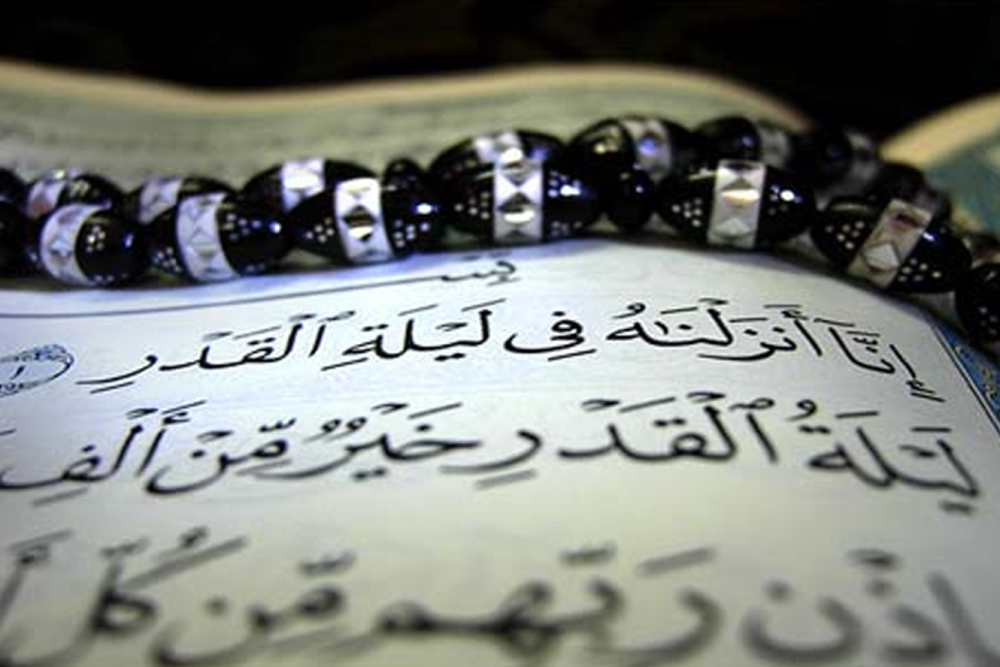 إِنَّآ أَنزَلْنَٰهُ فِى لَيْلَةِ ٱلْقَدْرِ ١
لَيْلَةُ ٱلْقَدْرِ خَيْرٌ مِّنْ أَلْفِ
إِذْنِ رَبِّهِم مِّن كُلِّ أَ